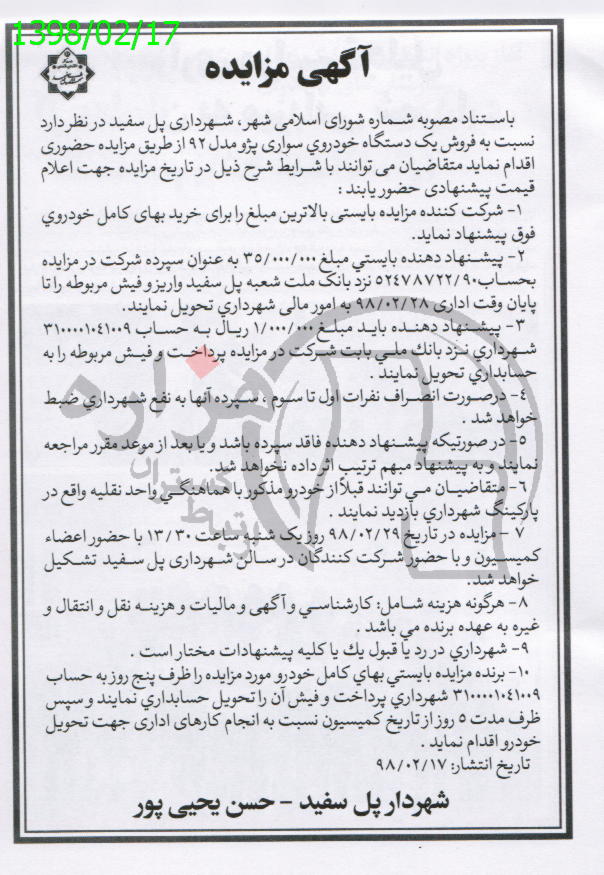 1398/02/17
آگهی مزایده
باستناد مصوبه شماره شورای اسلامی شهر، شهرداری پل سفید در نظر دارد
نسبت به فروش یک دستگاه خودروي سواری پژو مدل ۹۲ از طریق مزایده حضوری
اقدام نماید متقاضیان می توانند با شرایط شرح ذیل در تاریخ مزایده جهت اعلام
قیمت پیشنهادی حضور یابند :
۱- شرکت کننده مزایده بایستی بالاترین مبلغ را برای خرید بهای کامل خودروي
فوق پیشنهاد نماید.
۲- پیشنهاد دهنده بایستي مبلغ ۳۵/۰۰۰/۰۰۰ به عنوان سپرده شرکت در مزایده
بحساب۵۲۴۷۸۷۲۲/۹۰ نزد بانک ملت شعبه پل سفید واریز و فیش مربوطه را تا
پایان وقت اداری ۹۸/۰۲/۲۸ به امور مالی شهرداري تحویل نمایند.
۳- پیشنهاد دهنده باید مبلغ ۱/۰۰۰/۰۰۰ ریال به حساب ۳۱۰۰۰۰۱۰۴۱۰۰۹
شهرداري نزد بانك ملي بابت شرکت در مزایده پرداخت و فیش مربوطه را به
حسابداري تحویل نمایند .
۴- درصورت انصراف نفرات اول تا سوم ، سپرده آنها به نفع شهرداري ضبط
خواهد شد .
۵- در صورتیکه پیشنهاد دهنده فاقد سپرده باشد و یا بعد از موعد مقرر مراجعه
نمایند و به پیشنهاد مبهم ترتیب اثر داده نخواهد شد.
۶- متقاضیان می توانند قبلاً از خودرو مذکور با هماهنگي واحد نقلیه واقع در
پارکینگ شهرداري بازدید نمایند .
۷ - مزایده در تاریخ ۹۸/۰۲/۲۹ روز یک شنبه ساعت ۱۳/۳۰ با حضور اعضاء
کمیسیون و با حضور شرکت کنندگان در سالن شهرداری پل سفید تشکیل
خواهد شد.
۸- هرگونه هزینه شامل: کارشناسي و آگهی و مالیات و هزینه نقل و انتقال و
غیره به عهده برنده می باشد .
۹- شهرداري در رد یا قبول یك یا کلیه پیشنهادات مختار است .
۱۰- برنده مزایده بایستي بهاي کامل خودرو مورد مزایده را ظرف پنج روز به حساب
۳۱۰۰۰۰۱۰۴۱۰۰۹ شهرداري پرداخت و فیش آن را تحویل حسابداري نمایند و سپس
ظرف مدت ۵ روز از تاریخ کمیسیون نسبت به انجام کارهای اداری جهت تحویل
خودرو اقدام نماید .
تاریخ انتشار: ۹۸/۰۲/۱۷
شهردار پل سفید - حسن یحیی پور
هزاره
گسترش
ارتباط